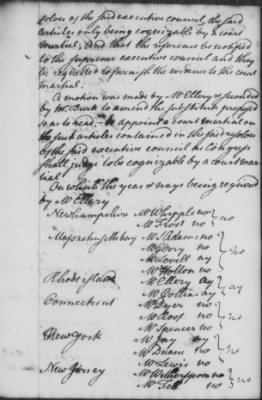 solves of the said executive council, the said
articles only being cognizable by a court
martial; And that the reference be notified
to the supreme executive council and they
be requested to furnish the evidence to the court
martial.
A motion was made by Mr Ellery & seconded
by Mr Burk to amend the substitute proposed
so as to read, "to appoint a court martial on
such articles contained in the said resolves
of the said executive council as Congress
shall judge to be cognizable by a court mar-
tial
On which the yeas & nays being required
by Mr Ellery
New hampshire Mr Whipple no } no
Mr Frost no
Massachusetts bay Mr S Adams no } no
Mr Gerry no
Mr Lovell ay
Mr Holton no
Rhode island Mr Ellery ay } ay
Mr Collins ay
Connecticut Mr Dyer no } no
Mr Root no
Mr Spencer no
New York Mr Jay ay } no
Mr Duane no
Mr Lewis no
New Jersey Mr Witherspoon no } no
Mr Fell no